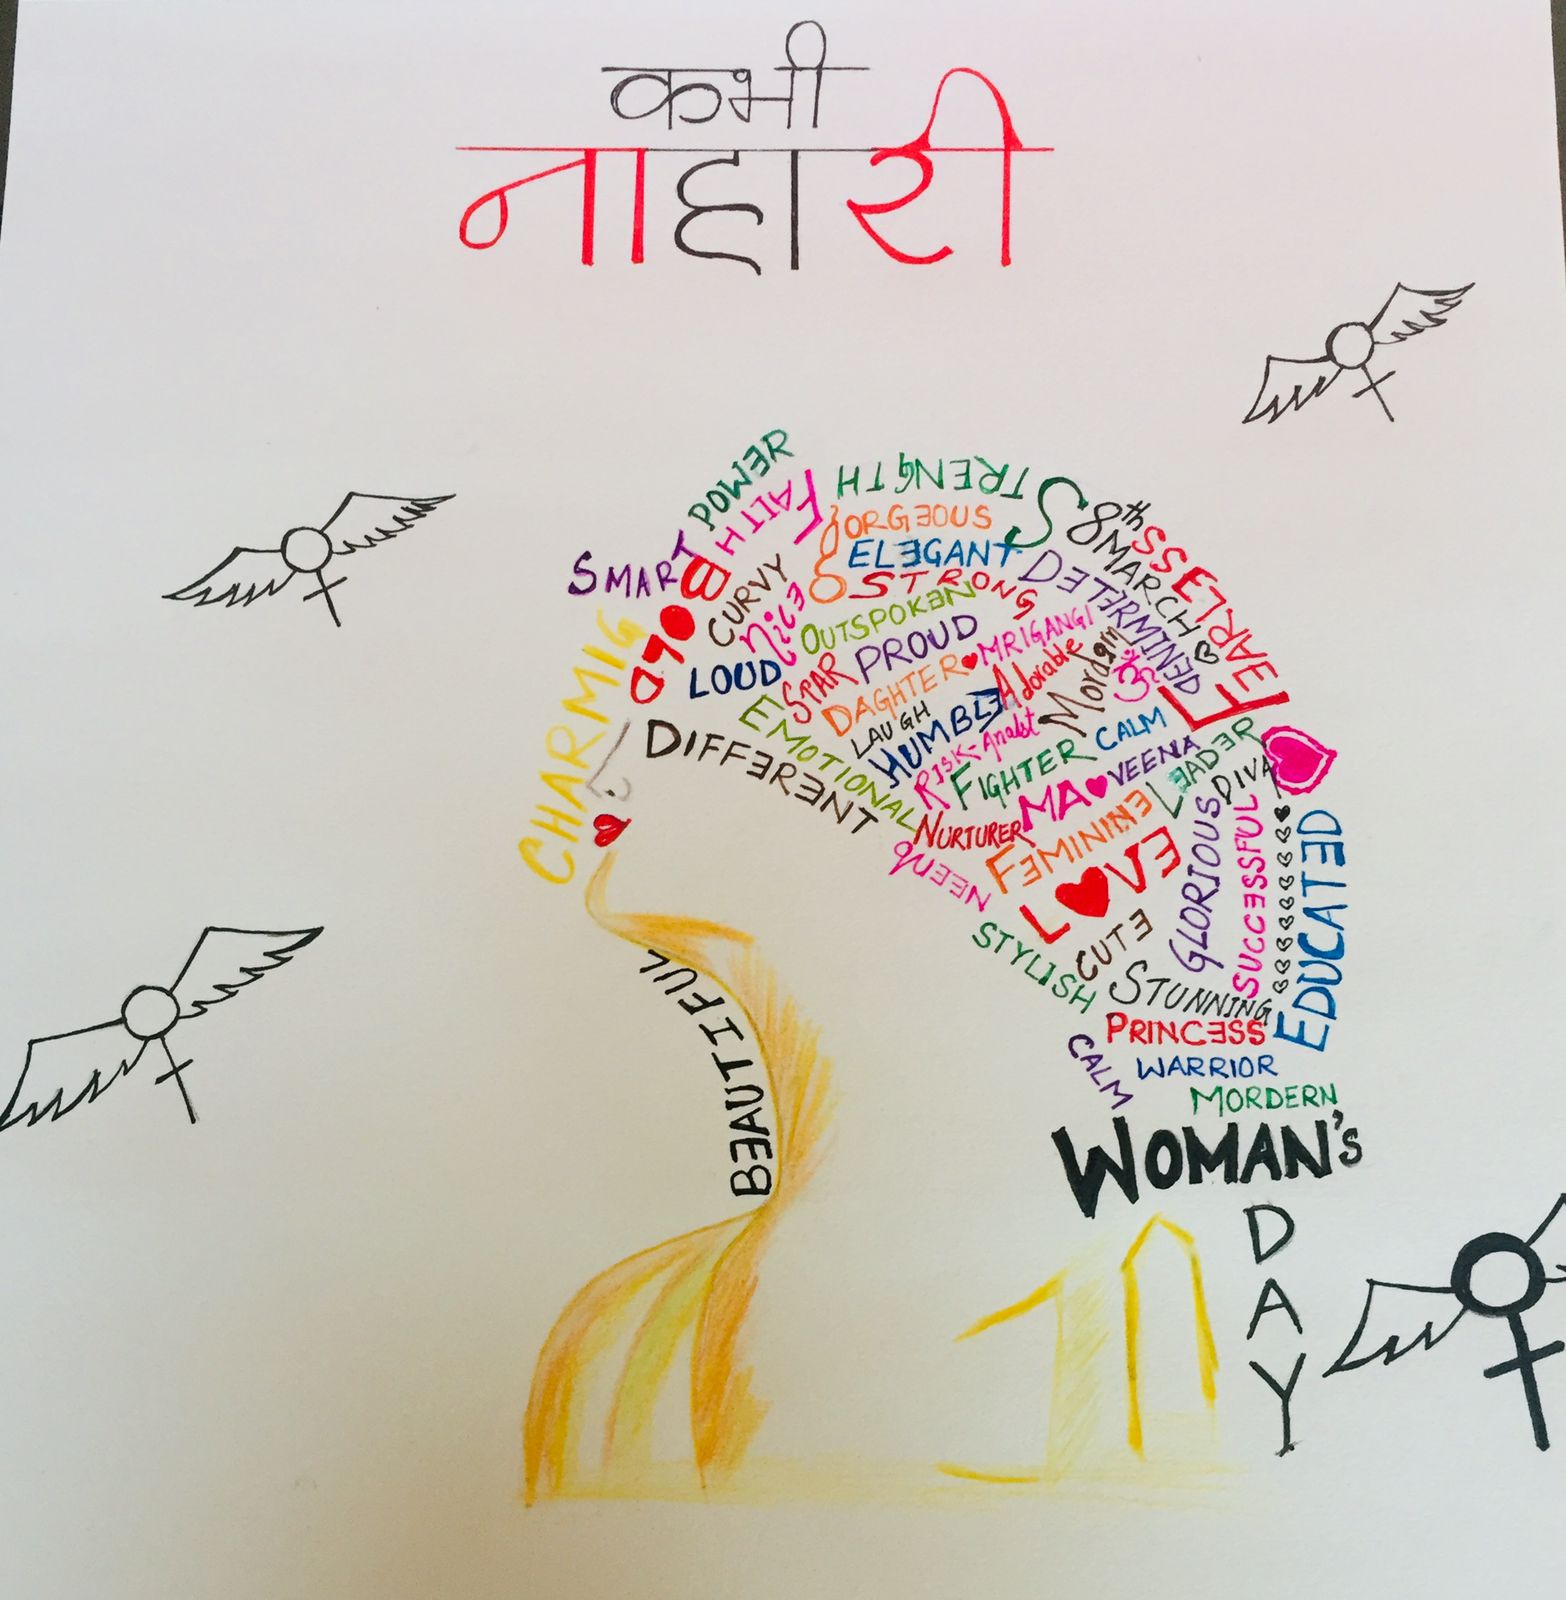 कभी
नाहारी
POWER
STRENGTH
FAITH
SMART
BOLD
GORGEOUS
8th MARCH
FEARLESS
ELEGANT
CURVY
nice
STRONG
DETERMINED
OUTSPOKEN
CHARMIG
LOUD
PROUD
MRIGANGI
SPAR
DAGHTER
Adorable
Mordern
ॐ
DIFFERENT
EMOTIONAL
LAUGH
HUMBLE
RISK-Analst
FIGHTER
CALM
MA
VEENA
LEADER
DIVA
NURTURER
FEMININE
LOVE
GLORIOUS
SUCCESSFUL
EDUCATED
STYLISH
CUTE
STUNNING
PRINCESS
CALM
WARRIOR
MORDERN
BEAUTIFUL
WOMAN'S
DAY